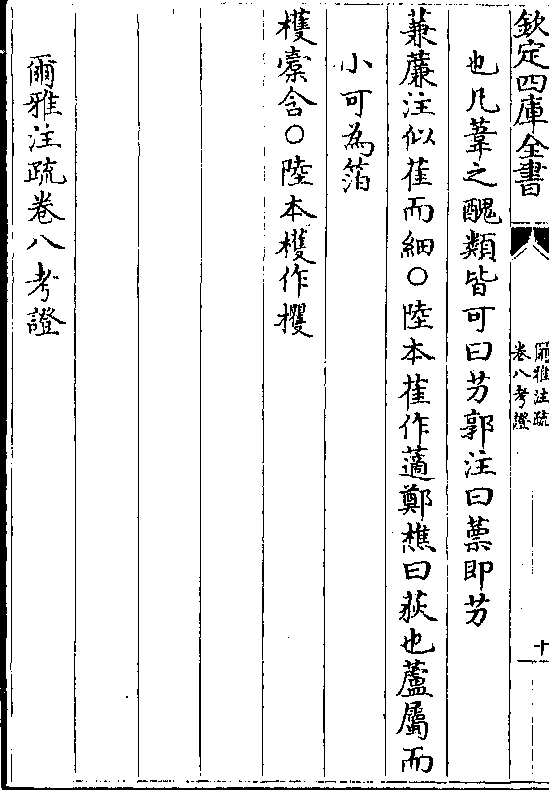 欽定四庫全書
爾雅注疏
卷八考證
十
也凡葦之醜類皆可曰艻郭注曰藨即艻
蒹薕注似萑而細○陸本萑作薖鄭樵曰荻也蘆屬而
小可為箔
檴橐含○陸本檴作欔
爾雅注疏卷八考證